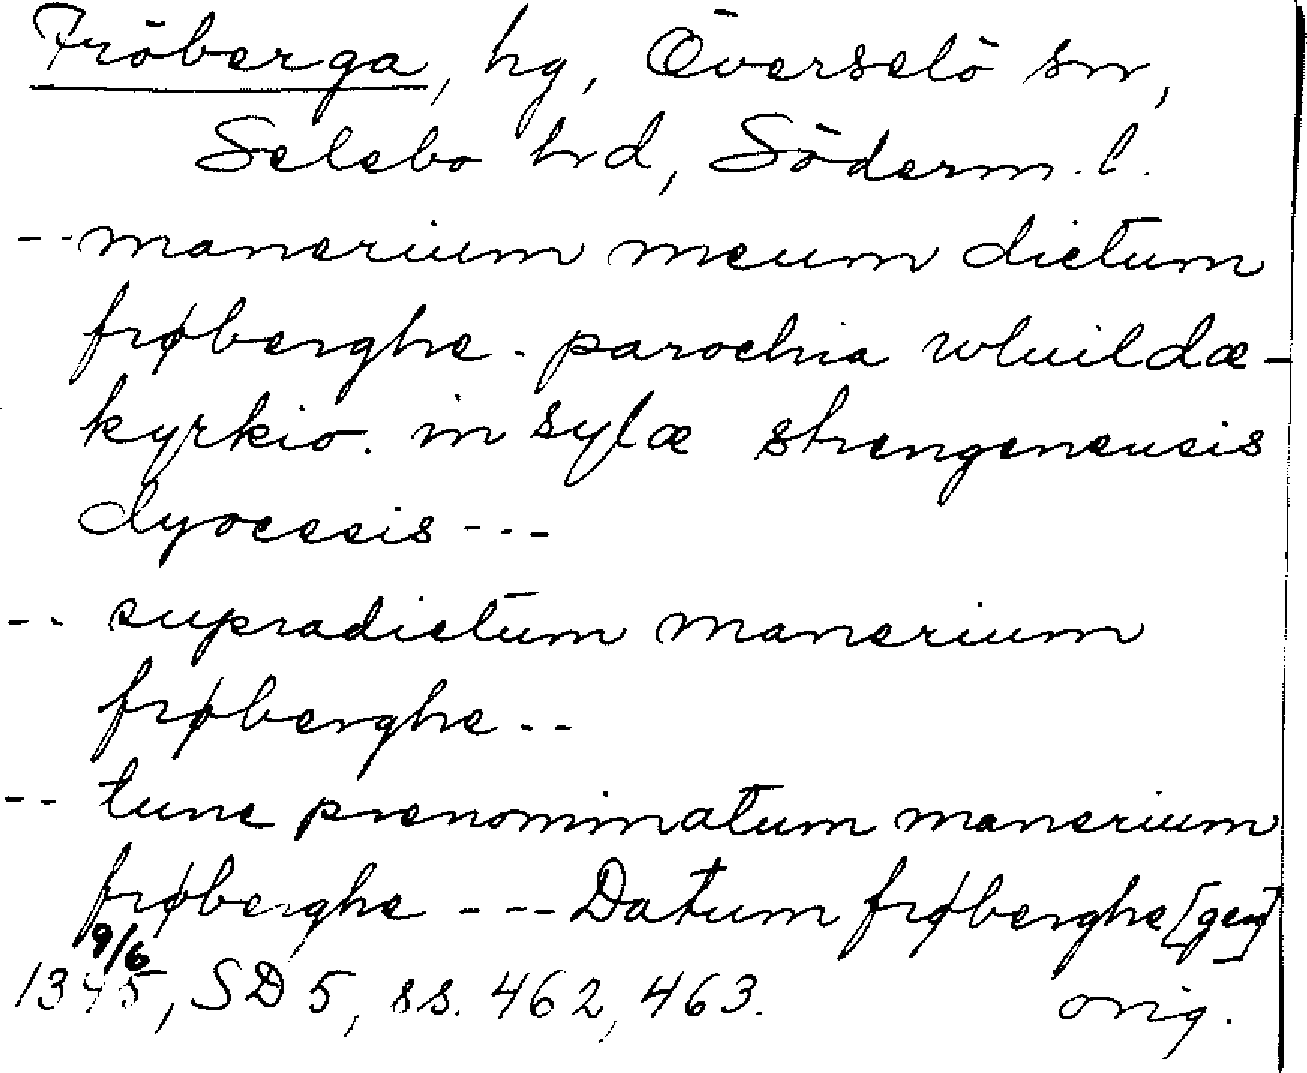 Fröberga, hg, Överselö sn,
Selebo hrd, Söderm. l.
-- manerium meum dictum
frøberghe. parochia whuildæ-
kyrkio. in sylæ strengenensis
dyocesis ---
-- supradictum manerium
frøberghe --
-- tunc prenominatum manerium
frøberghe --- Datum frøberghe [gen]
9/6
1345, SD 5, ss. 462, 463. orig.